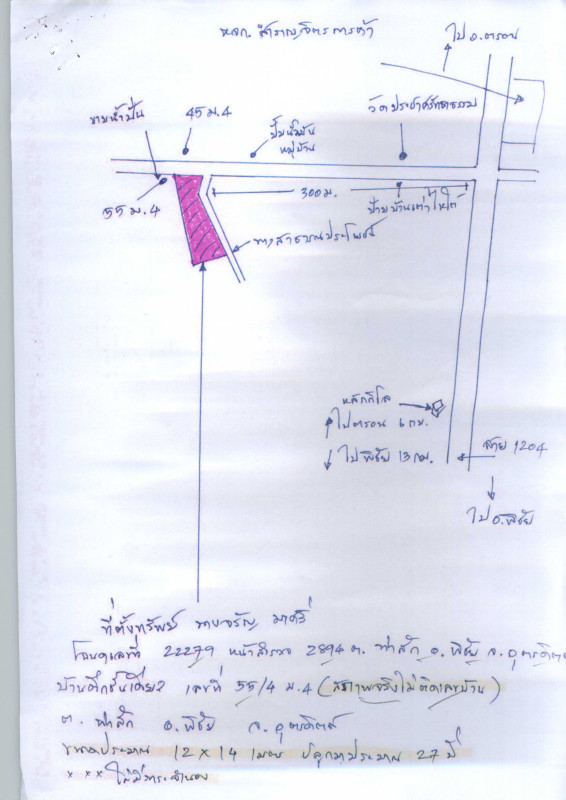 หจก. สำราญจิตรการค้า
ไป อ.ตรอน
ขายน้ำปั่น
45 ม.4
ปั๊มน้ำมัน
หมู่บ้าน
วัดประชาศรัทธาธรรม
55 ม.4
300 ม.
ป้ายบ้านเต่าไหใต้
ทางสาธารณประโยชน์
หลักกิโล
ไปตรอน 6 กม.
ไปพิชัย 13 กม.
สาย 1204
ไป อ.พิชัย
ที่ตั้งทรัพย์ นายจรัญ
โฉนดเลขที่ 22279 หน้าสำรวจ 2894 ต. ท่าสัก อ. พิชัย จ. อุตรดิตถ์
บ้านตึกชั้นเดียว เลขที่ 55/4 ม.4 (สภาพจริงไม่ติดเลขบ้าน)
ต. ท่าสัก อ. พิชัย จ. อุตรดิตถ์
ขนาดประมาณ 12 x 14 เมตร ปลูกมาประมาณ 27 ปี
*** ไม่มีภาระจำนอง